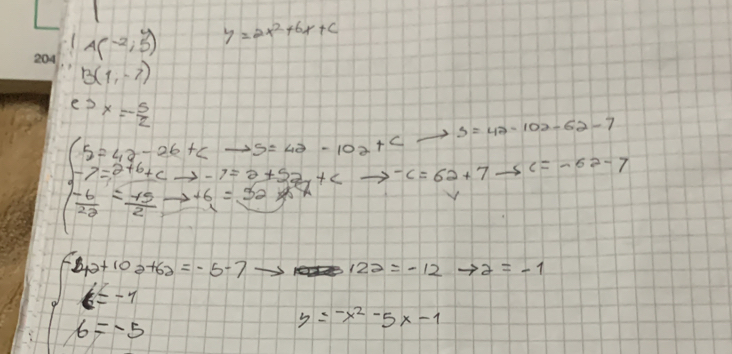 204
A(-2; 5) y = ax² + bx + c
B(1, -7)
e) x = -5/2
5 = 4a - 2b + c → 5 = 4a - 10a + c → 5 = 4a - 10a - 6a - 7
-7 = a + b + c → -7 = a + 5a + c → -c = 6a + 7 → c = -6a - 7
-b/2a = -5/2 → +b = 5a
-4a + 10a + 6a = -5 - 7 → 12a = -12 → a = -1
c = -1
b = -5 y = -x² - 5x - 1